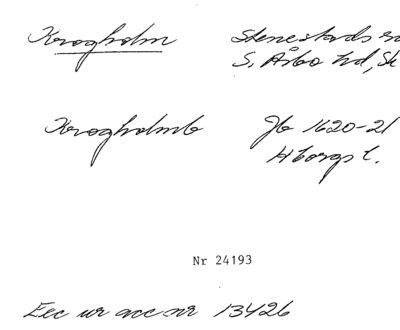 Krogholm Stenestads sn
S. Åsbo hd, Sk
Krogholmb Jb 1620-21
Hborgs l.
Nr 24193
Exc ur acc nr 13426